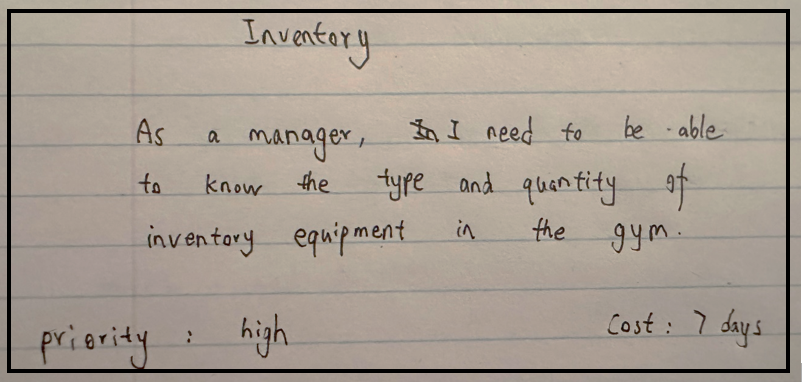 Inventory
As a manager, I need to be able
to know the type and quantity of
inventory equipment in the gym.
priority : high Cost : 7 days